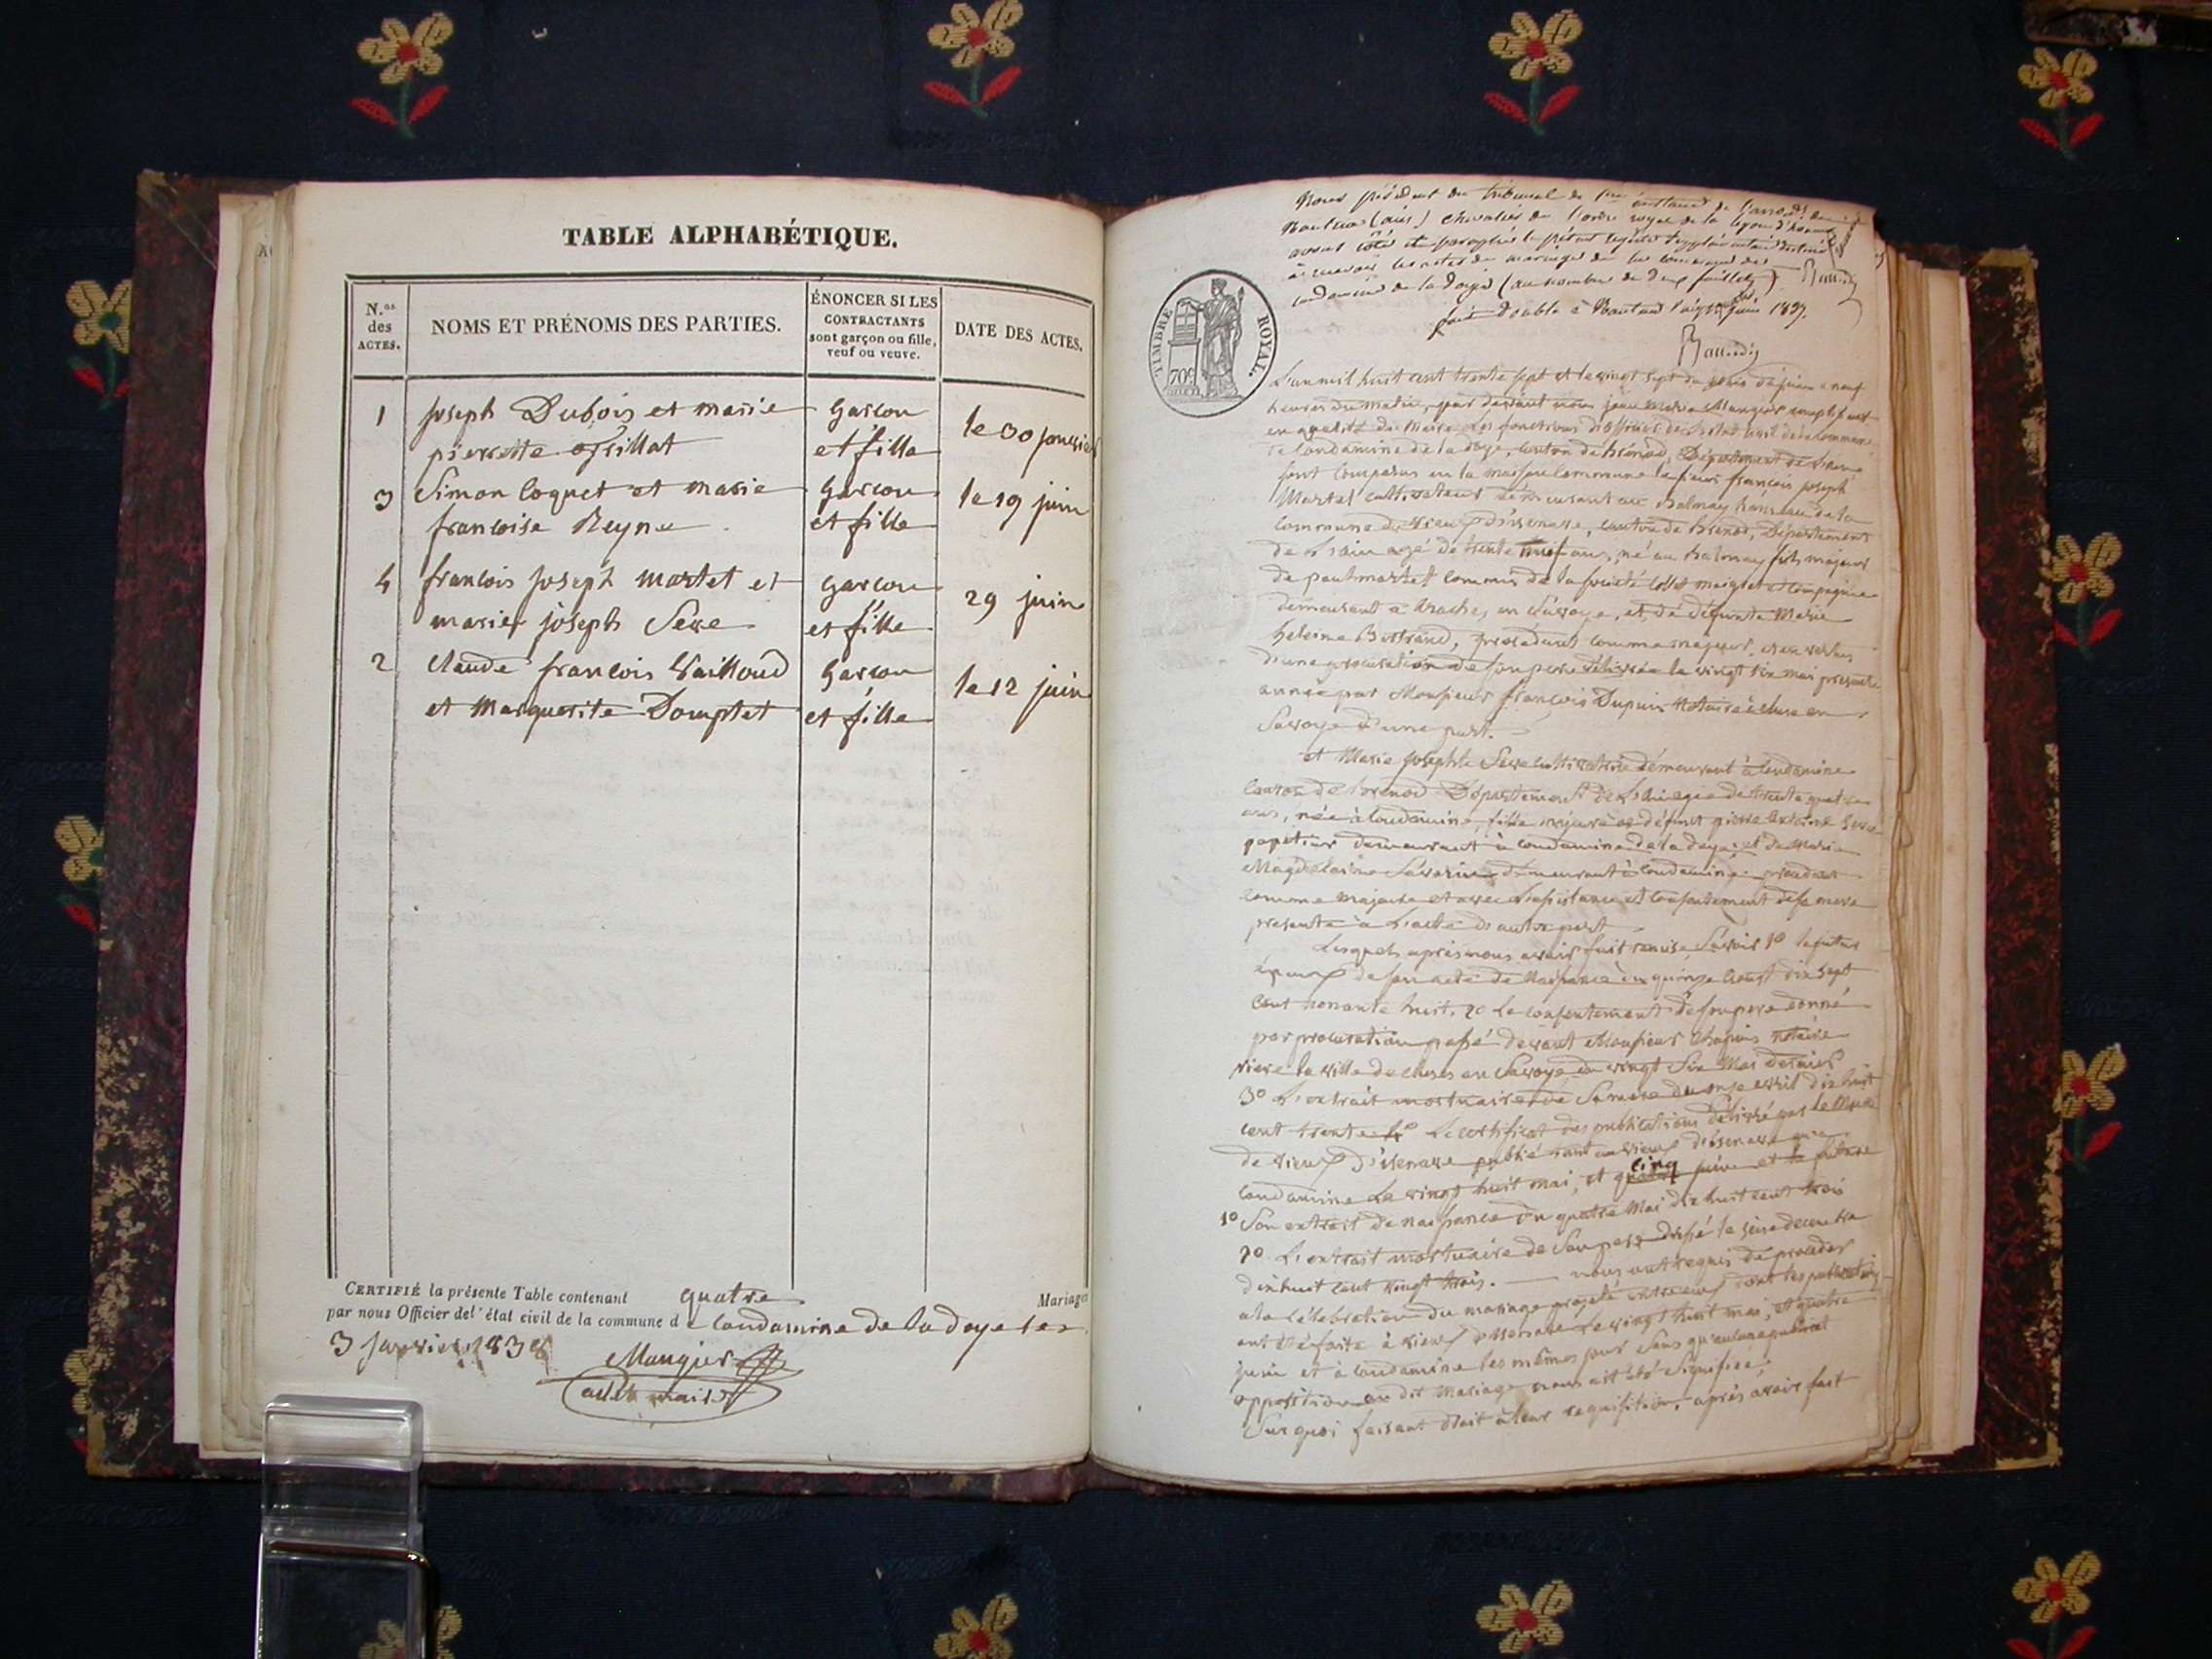 TABLE ALPHABÉTIQUE.
N.os des ACTES.
NOMS ET PRÉNOMS DES PARTIES.
ÉNONCER SI LES
CONTRACTANTS
sont garçon ou fille,
veuf ou veuve.
DATE DES ACTES.
1 joseph Dubois et marie garcon le 30 janvier
pierrette et fille
3 Simon Coquet et marie garcon le 19 juin
francoise Reyne et fille
4 francois joseph martet et garcon 29 juin
marie joseph Serre et fille
2 claude francois Vailloud garcon le 12 juin
et Marguerite Domptet et fille
CERTIFIÉ la présente Table contenant quatre Mariages
par nous Officier de l'état civil de la commune de Condamine de la doye le
3 janvier 1838
Maugier
adjt maire
Nous président du tribunal de 1re instance de l'arrondt de
Nantua (ain) chevalier de l'ordre royal de la légion d'honneur
avons coté et paraphé le présent registre supplémentaire destiné
à recevoir les actes de mariages de la commune de
condamine de la doye (au nombre de deux feuillets)
fait double à Nantua juin 1837.
TIMBRE ROYAL.
70c
L'an mil huit cent trente sept et le vingt sept du mois de juin a neuf
heures du matin, par devant nous jean Marie Maugier
en qualité de Maire les fonctions d'officier de l'état civil de la commune
de Condamine de la doye, canton de Brénod, Département de l'ain
sont comparus en la maison commune le sieur françois joseph
Martet cultivateur demeurant au Balmay hameau de la
commune de vieux d'izenave, canton de Brénod, Département
de L'ain agé de trente huit ans, né au Balmay fils majeur
de paul martet commis de la société et compagnie
demeurant a arache, en Savoye, et de défunte Marie
heleine Bertrand, procédant comme majeur, et en vertu
d'une procuration de son pere délivrée le vingt six mai présente
année par Monsieur françois Dupuis Notaire à cluse en
Savoye d'une part.
et Marie josephte Serre cultivatrice demeurant à Condamine
canton de brenod Département de L'ain agée de trente quatre
ans, née à Condamine, fille majeure de défunt pierre antoine Serre
papetier demeurant à condamine de la doye et de Marie
Magdelaine Savarin demeurant à Condamine procédant
comme majeure et avec l'assistance et consentement de sa mere
presente à L'acte d'autre part
Lesquels après nous avoir fait remise, Savoir 1o le futur
époux de son acte de Naissance du quinze Aoust dix sept
cent nonante huit. 2o Le consentement de son pere donné
par procuration passé devant Monsieur notaire
la ville de cluses en Savoye du vingt Six Mai dernier
3o L'extrait mortuaire de Sa mere du onze avril dix huit
cent trente 4o Le certificat des publications délivré par le Maire
de vieux d'izenave publié tant au vieux d'izenave qu'a
condamine Le vingt huit mai, et cinq juin et la future
1o Son extrait de naissance du quatre Mai dix huit cent trois
2o L'extrait mortuaire de Son pere le seize decembre
dix huit cent vingt trois. — nous ont requis de procéder
a la célébration du mariage projeté entre eux dont les publications
ont été faite à vieux d'izenave Le vingt huit mai, et quatre
juin et à condamine les mêmes jour Sans qu'aucune
opposition au dit Mariage nous ait été Signifiée
Sur quoi faisant droit à leur requisition, après avoir fait